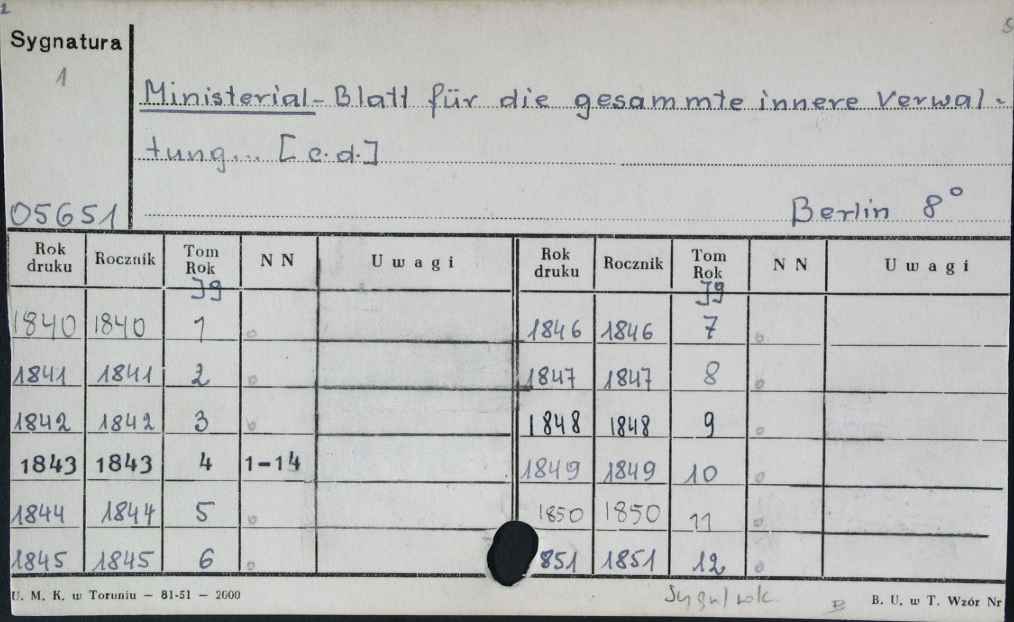 2
5
Sygnatura
1
Ministerial-Blatt für die gesammte innere Verwal-
tung... [c.d.]
05651
Berlin 8°
Rok druku Rocznik Tom Rok NN Uwagi Rok druku Rocznik Tom Rok NN Uwagi
Jg Jg
1840 1840 1 1846 1846 7
1841 1841 2 1847 1847 8
1842 1842 3 1848 1848 9
1843 1843 4 1-14 1849 1849 10
1844 1844 5 1850 1850 11
1845 1845 6 851 1851 12
U. M. K. w Toruniu – 81-51 – 2000
Sygn/rok
B
B. U. w T. Wzór Nr